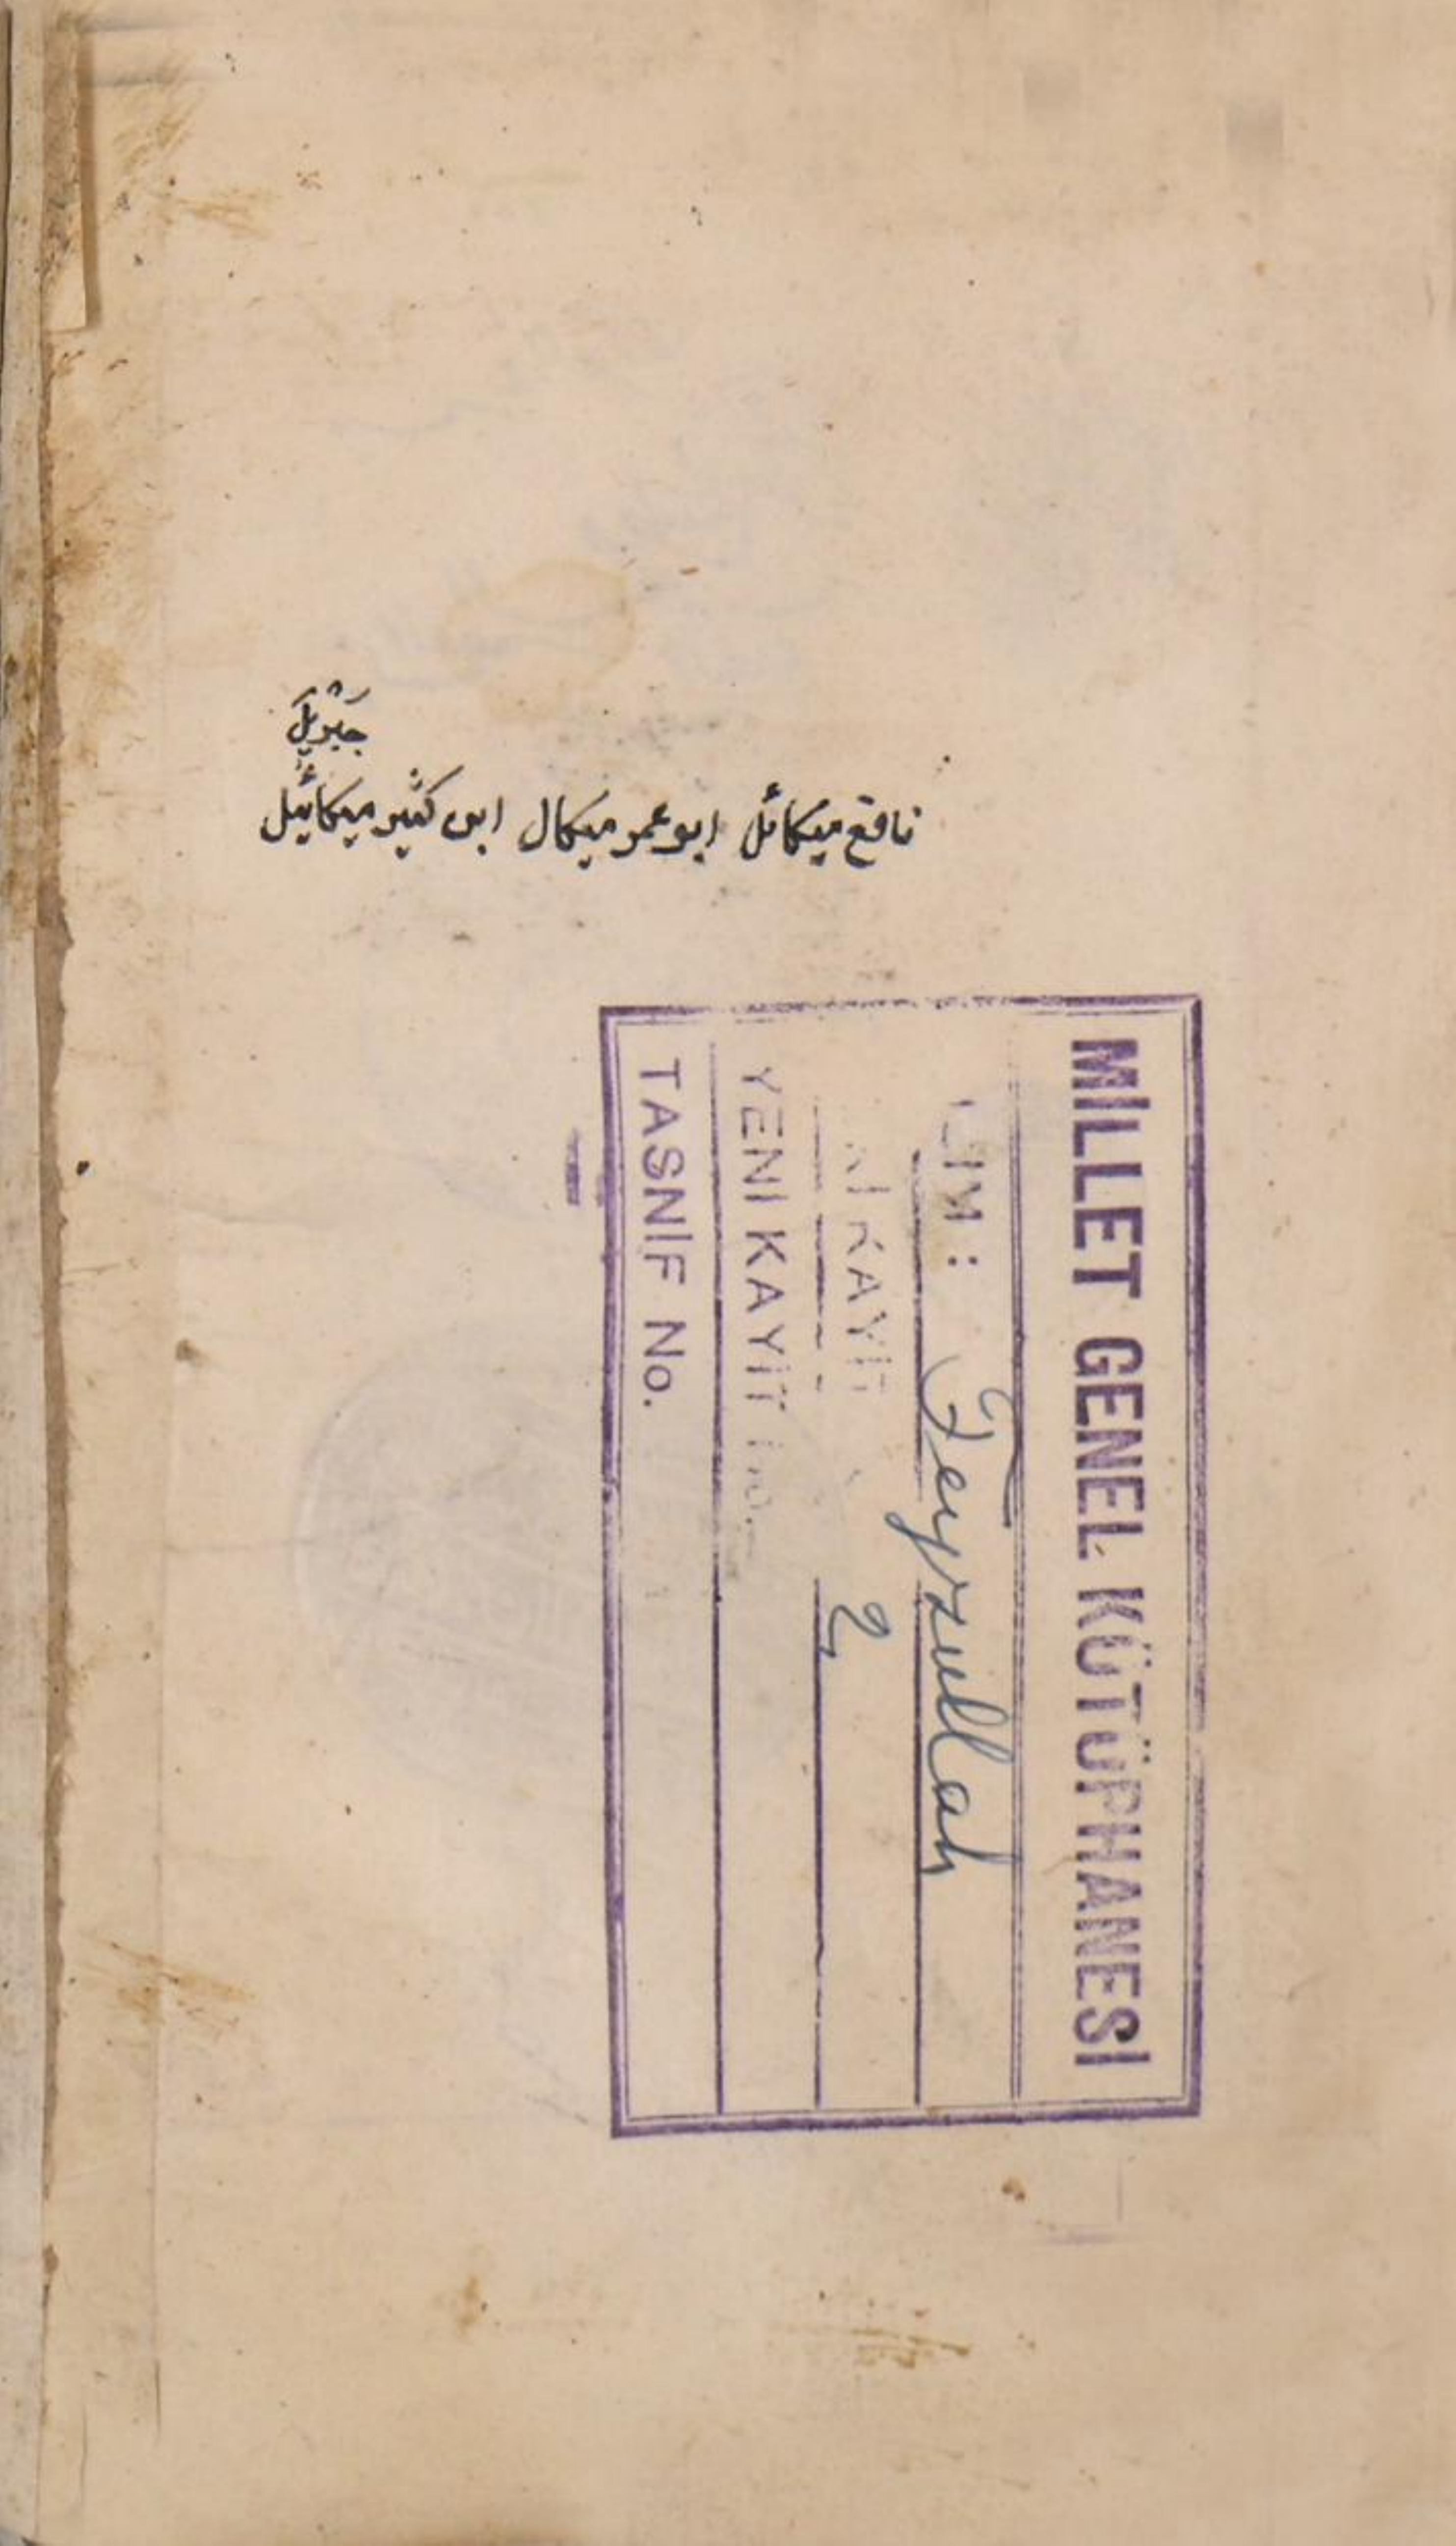 جَبْرِيلَ
نافع ميكائل ابو عمر ميكال ابن كثير ميكائيل
MİLLET GENEL KÜTÜPHANESİ
Feyzullah
KAYIT 2
YENİ KAYIT No.
TASNİF No.